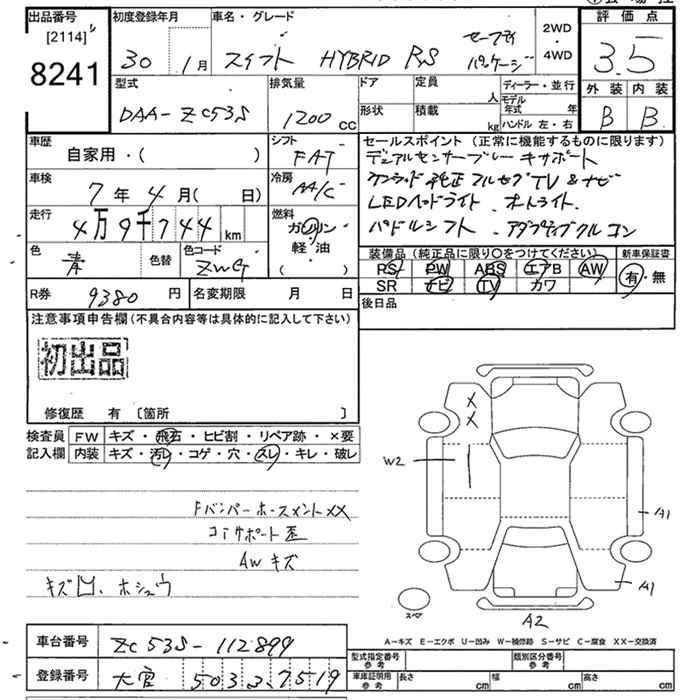 出品番号
[2114]
8241
初度登録年月
30 1月
車名・グレード
スイフト HYBRID RS セーフティ
パッケージ
2WD
・
4WD
評価点
3.5
外装 内装
B B
型式
DAA-ZC53S
排気量
1200 cc
ドア
定員
人
形状
積載
kg
ディーラー・並行
モデル年式 年
ハンドル 左・右
車歴
自家用・( )
シフト
FAT
車検
7年4月( 日)
冷房
AA/C
走行
4万9千744 km
燃料
ガソリン
軽・油
( )
色
青
色替
色コード
ZWG
R券
9380 円
名変期限 月 日
セールスポイント(正常に機能するものに限ります)
デュアルセンサーブレーキサポート
ケンウッド純正フルセグTV&ナビ
LEDヘッドライト、オートライト、
パドルシフト、アダプティブクルコン
装備品(純正品に限り〇をつけてください)
RS PW ABS エアB AW
SR ナビ TV カワ
新車保証書
有・無
後日品
注意事項申告欄(不具合内容等は具体的に記入して下さい)
初出品
修復歴 有 [箇所 ]
検査員
記入欄
FW キズ・飛石・ヒビ割・リペア跡・×要
内装 キズ・汚レ・コゲ・穴・スレ・キレ・破レ
FバンパーホースメントXX
コアサポート歪
AWキズ
キズ凹、ホシュウ
X
X
W2
A1
A1
A2
スペア
A－キズ E－エクボ U－凹み W－補修跡 S－サビ C－腐食 XX－交換済
車台番号
ZC53S-112899
登録番号
大宮 503 ふ7519
型式指定番号
参考
類別区分番号
参考
車庫証明用
参考
長さ cm
幅 cm
高さ cm